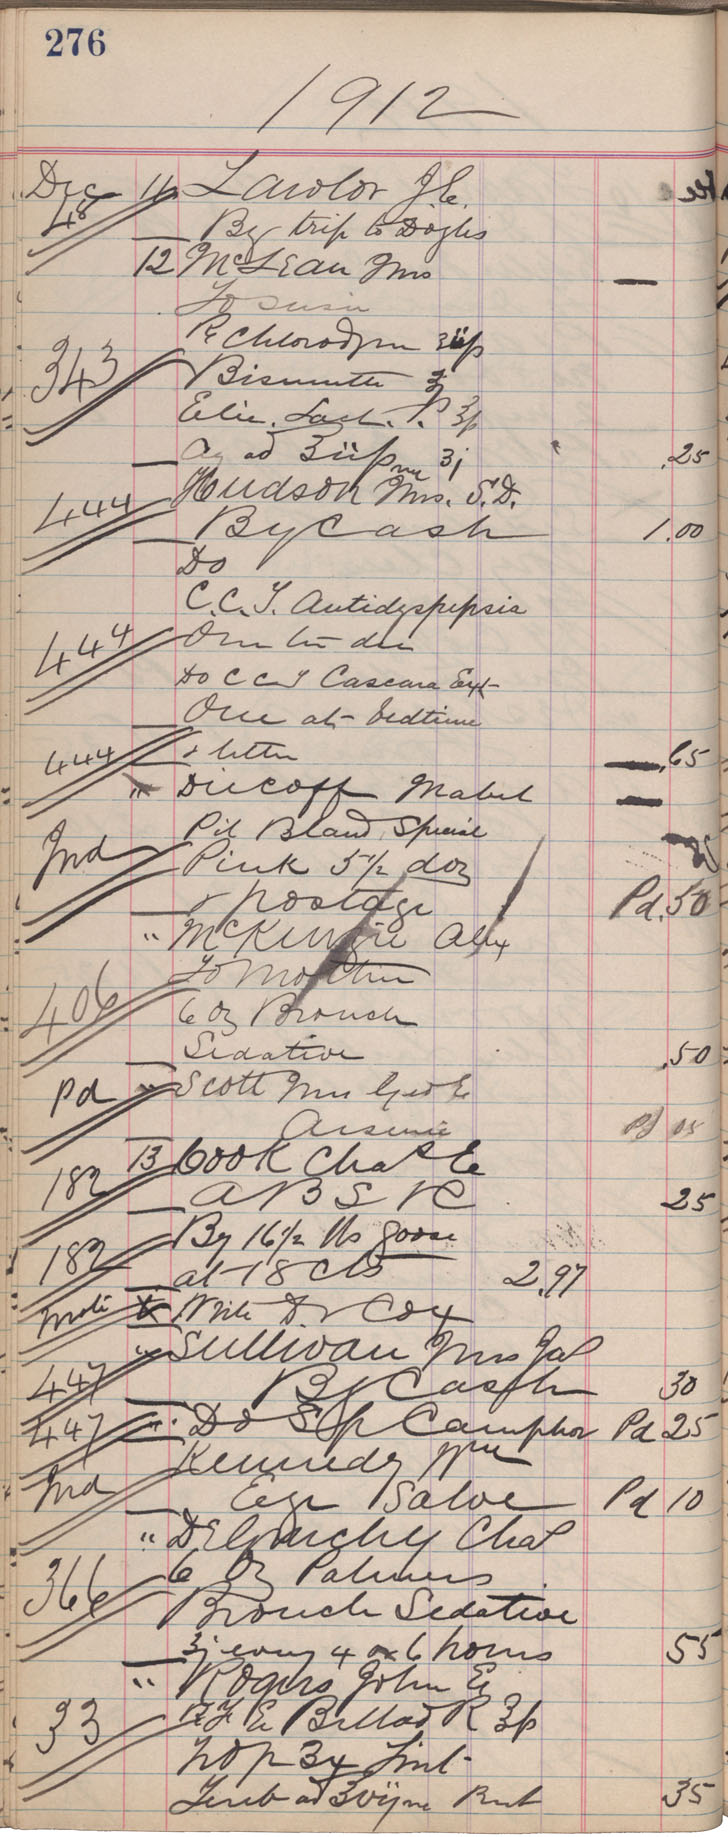 276
1912
Dec 11 Lawlor J.C.
48 By trip to Doyles
12 McLean Mrs
To Susie
Rx Chlorodyne
343 Bismuth
Elix. Lact. P.
Aq ad
.25
Hudson Mrs. S.D.
444 By Cash 1.00
Do
C.C.T. Antidyspepsia
444 One
Do C C T Cascara Ext
One at bedtime
444 + letter .65
" Mabel
Pil Blaud Special
Ind Pink 5 1/2 doz
+ postage Pd .50
" McKenzie Alex
To Mother
406 6 oz Bronch
Sedative .50
Pd " Scott Mrs Geo E
Arsenic Pd 05
13 Cook Chas E
182 A B S & C 25
By 16 1/2 lbs goose
182 at 18 cts 2.97
Write Dr Cox
" Sullivan Mrs Jas
447 By Cash 30
447 " Do Sp Camphor Pd 25
Kennedy Wm
Ind Eye Salve Pd 10
" DeGruchy Chas
366 6 oz Palmers
Bronch Sedative
3j every 4 or 6 hours 55
" Rogers John E
33 Rx F. E. Bellad R
Lint
Tereb ad 35